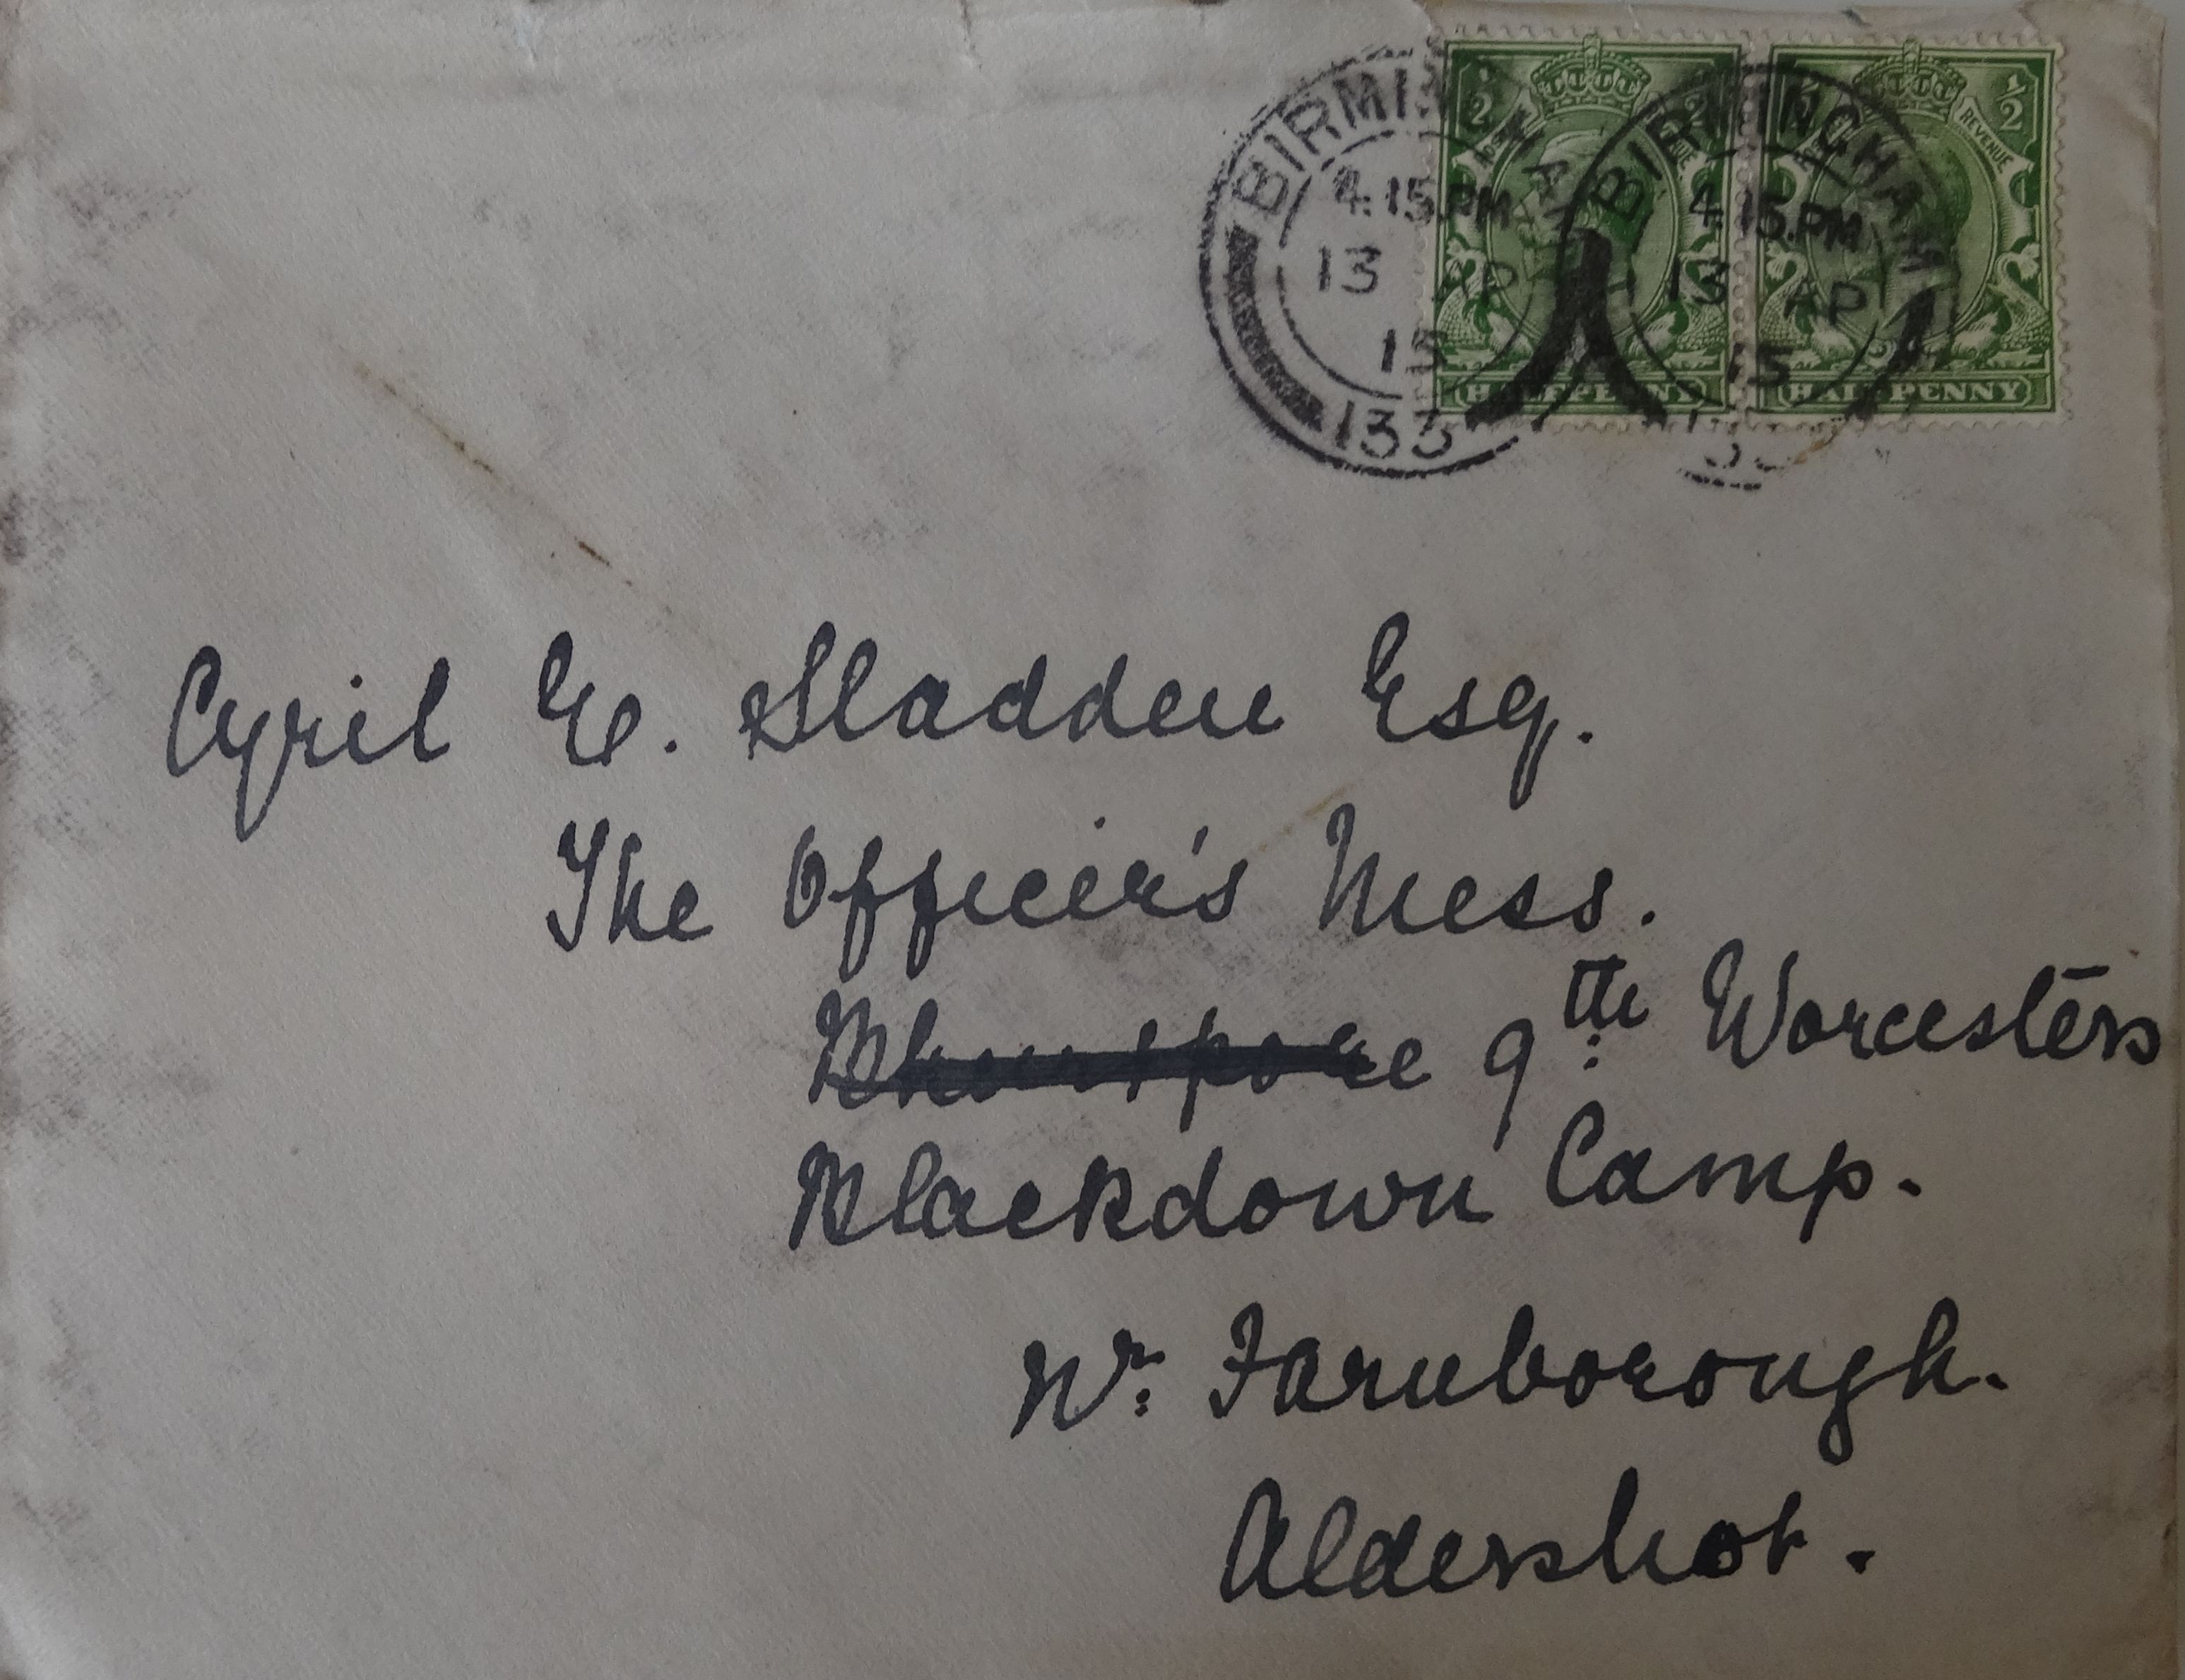 BIRMINGHAM
4.15.PM
13 AP
15
133
BIRMINGHAM
4.15.PM
13 AP
15
½
POSTAGE REVENUE
HALFPENNY
½
REVENUE
HALFPENNY
Cyril E. Sladden Esq.
The Officer's Mess.
9th Worcesters
Blackdown Camp.
Nr. Farnborough.
Aldershot.